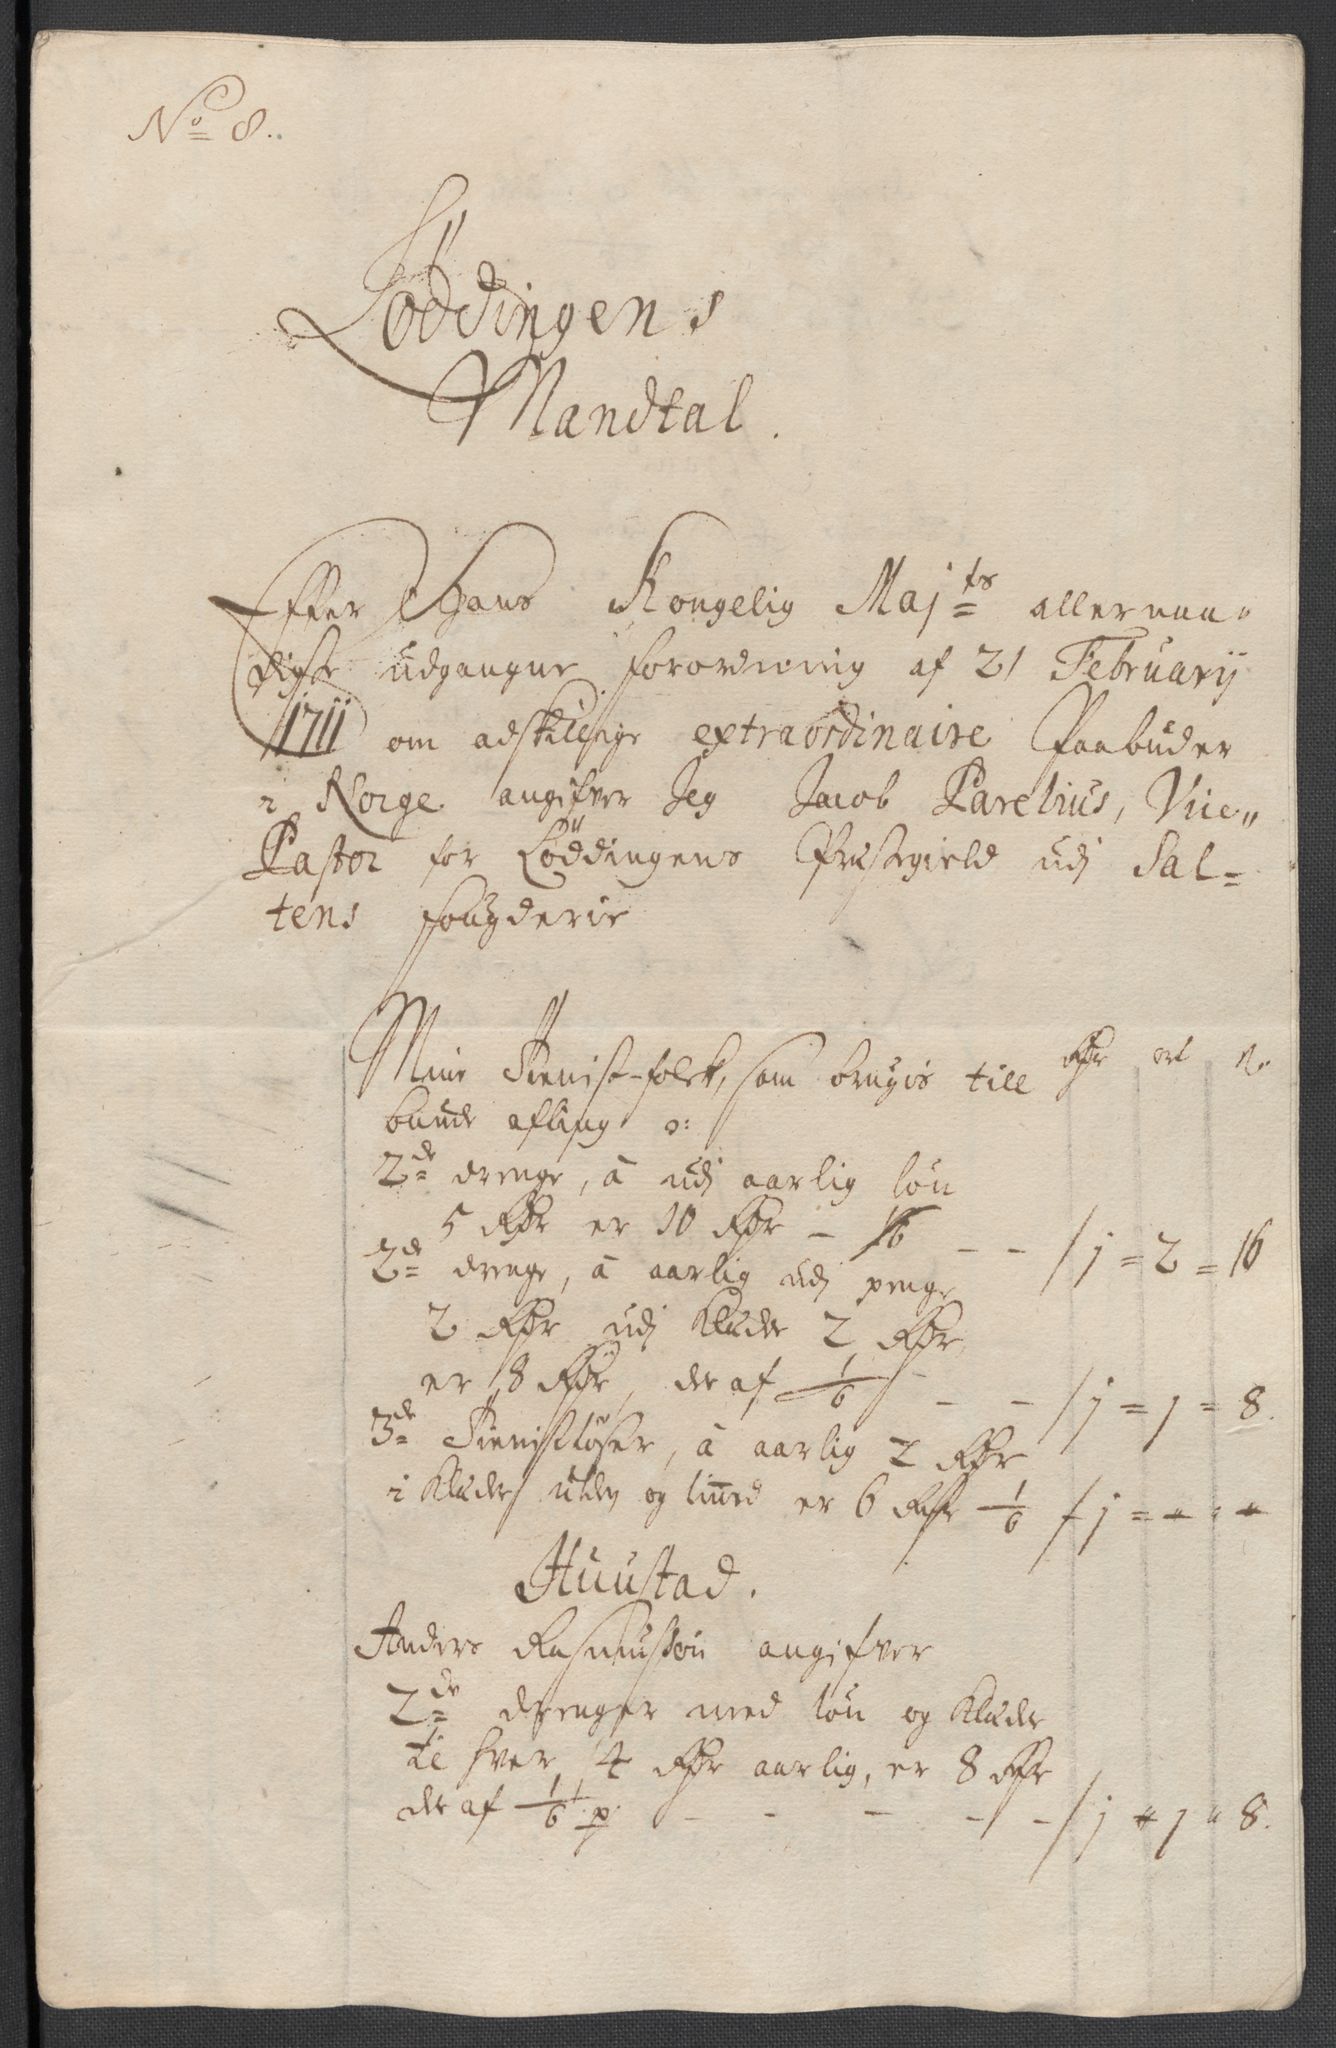 No 8.
Löddingens
Mandtal.
Effter Hans Kongelig Majts allernaa-
digste udgangne forordning af 21 Februarij
1711 om adskillige extraordinaire Paabuder
i Norge angifver Jeg Jacob Parelius, Vice-
Pastor for Löddingens Præstegield udj Sal=
tens fougderie
Mine Tienist-folck, som brugis till Rdr ort s.
bunde afling o:
2de drenge, â udj aarlig løn
5 Rdr er 10 Rdr - 1/6 - - / 1 = 2 = 16
2de drenge, â aarlig udj penge
2 Rdr udj Klæder 2 Rdr
er 8 Rdr, der af 1/6 - - / 1 = 1 = 8.
3de Tienisttøser, â aarlig 2 Rdr
i Klæder ulden og linned er 6 Rdr 1/6 / 1 = " = "
Huustad.
Anders Rasmussøn angifver
2de drenger med løn og Klæder
til hver 4 Rdr aarlig, er 8 Rdr
der af 1/6 p. - - - - - / 1 " 1 " 8.